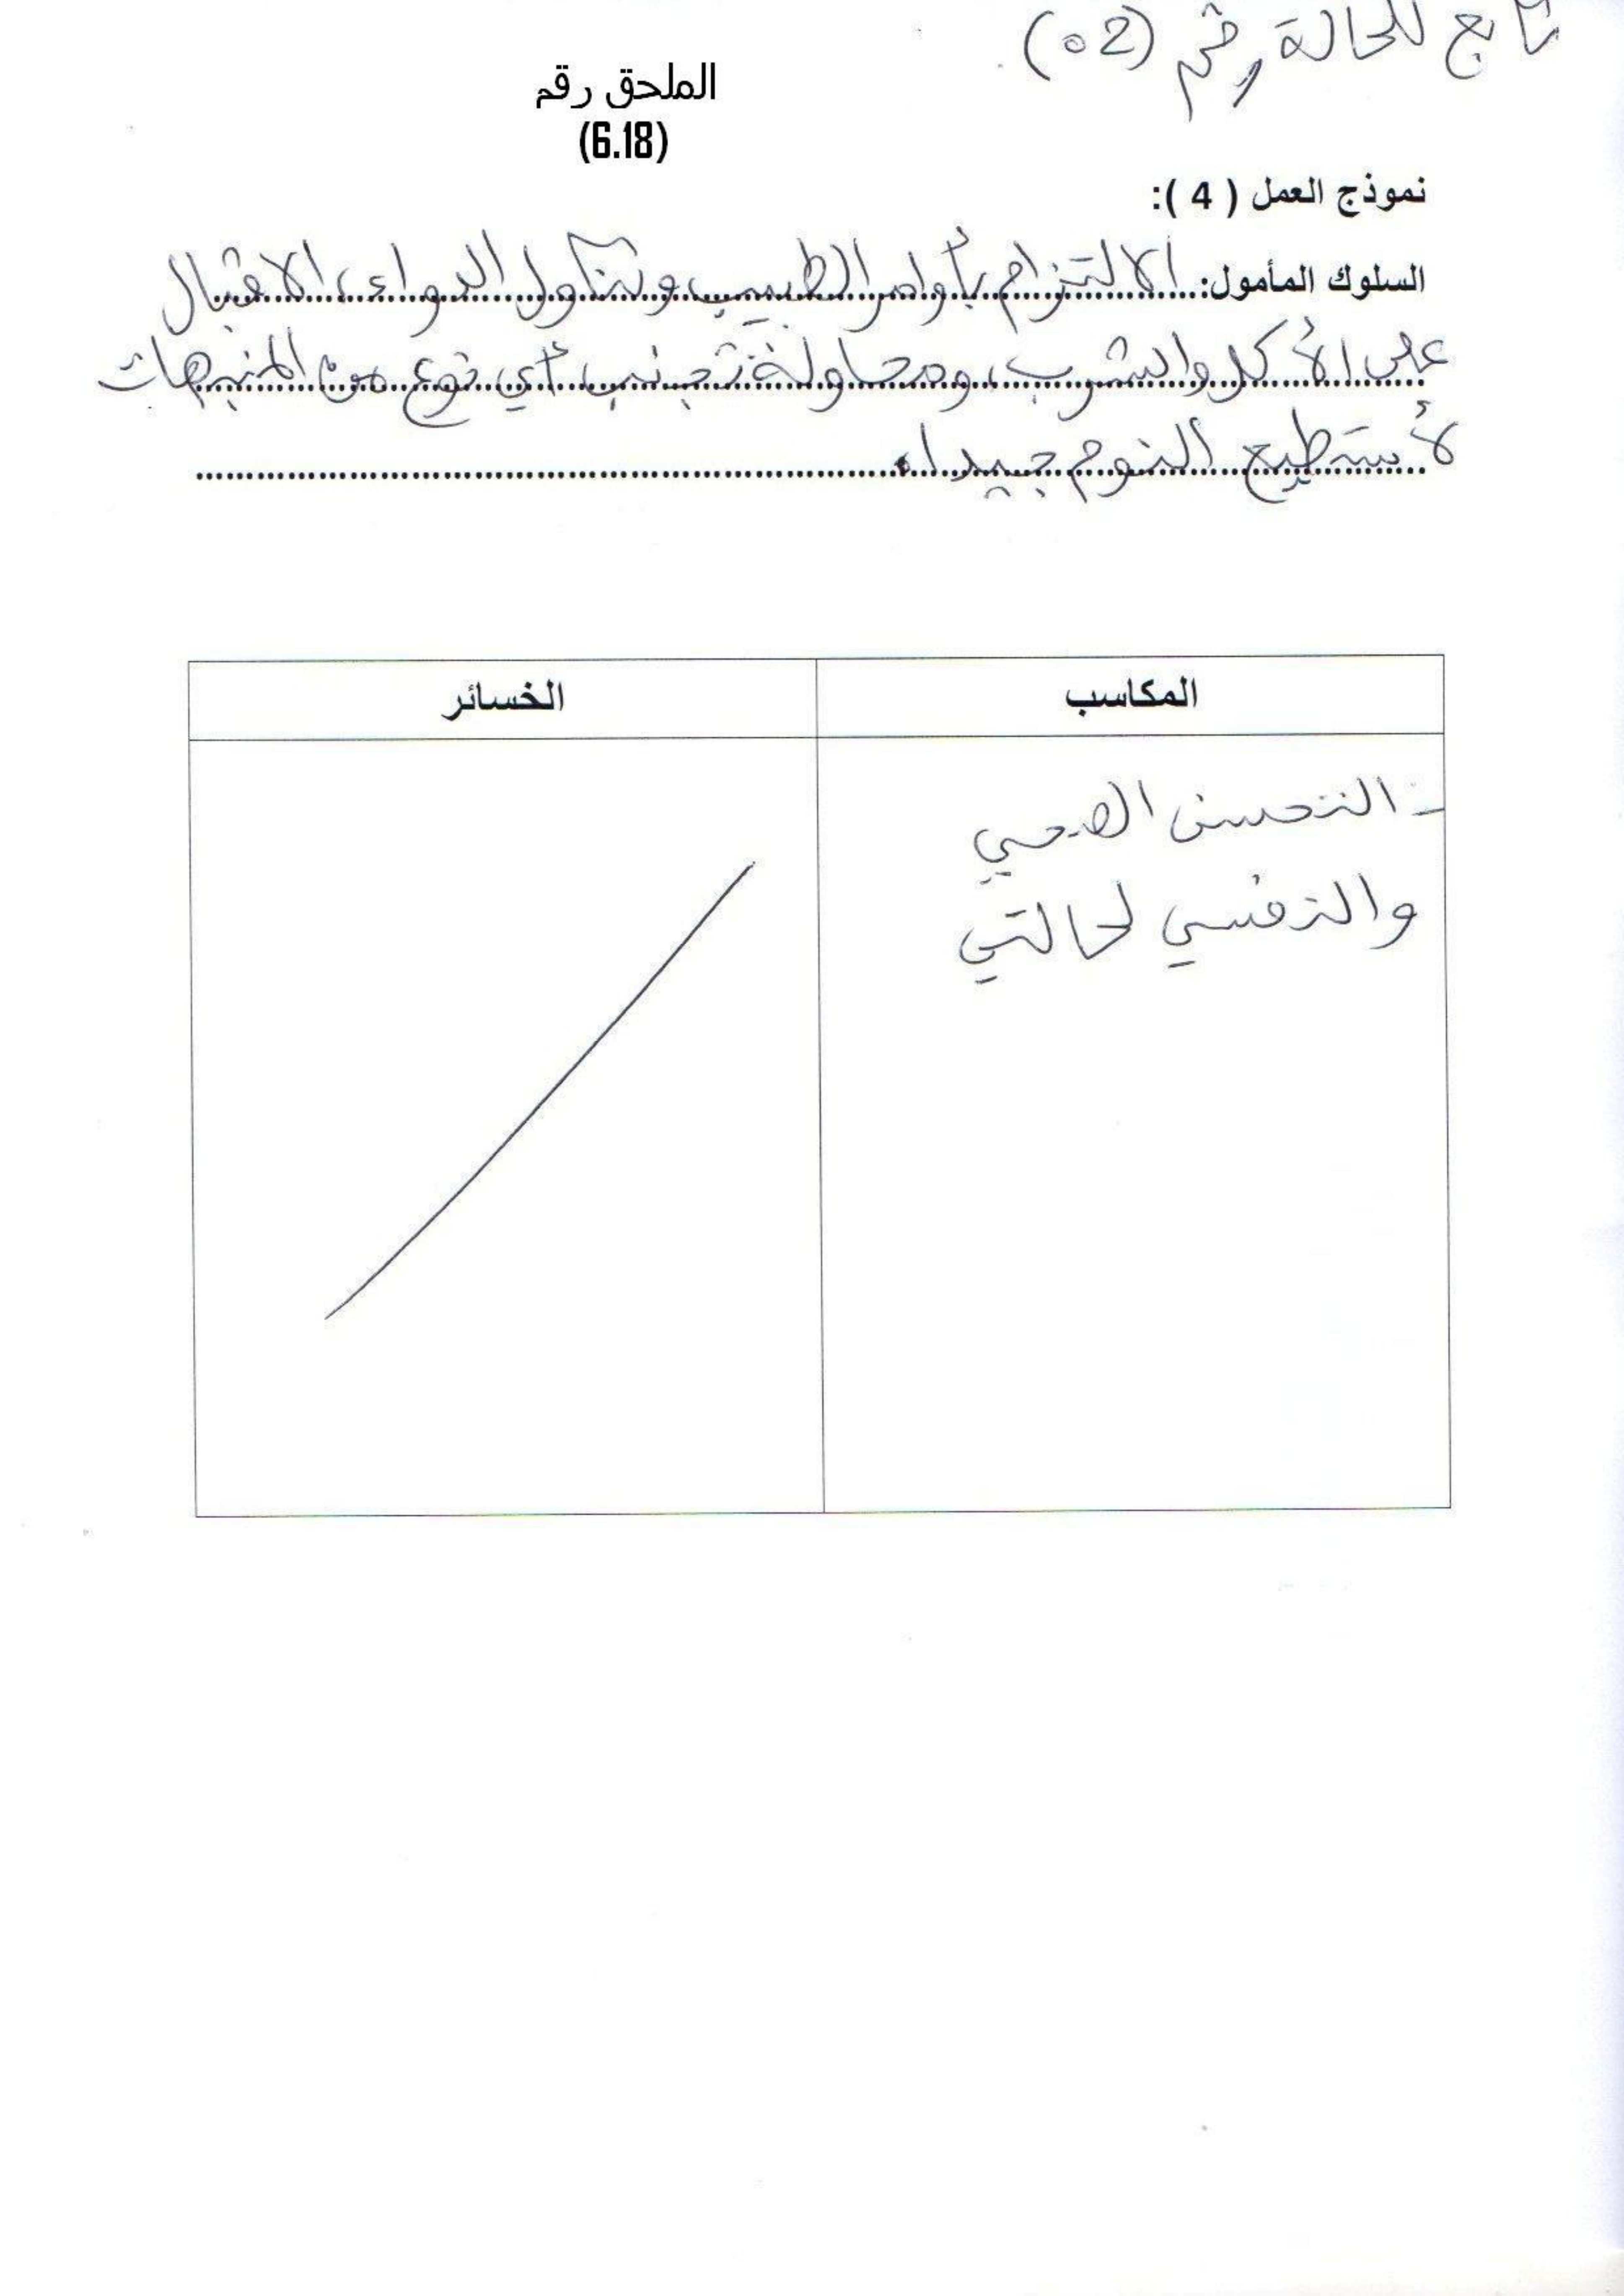 تابع للحالة رقم (02)
الملحق رقم
(6.18)
نموذج العمل ( 4 ):
السلوك المأمول: الالتزام بأوامر الطبيب وتناول الدواء، الاقبال
على الأكل والشرب، ومحاولة تجنب أي نوع من المنبهات
لأستطيع النوم جيدا.
المكاسب الخسائر
- التحسن الصحي
والنفسي لحالتي